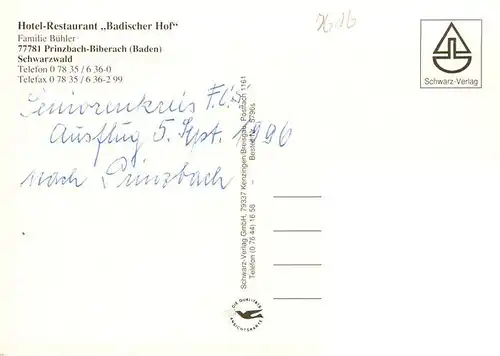 Hotel-Restaurant „Badischer Hof“
Familie Bühler
77781 Prinzbach-Biberach (Baden)
Schwarzwald
Telefon 0 78 35 / 6 36-0
Telefax 0 78 35 / 6 36-2 99
Schwarz-Verlag
Seniorenkreis
Ausflug 5. Sept. 1996
nach Prinzbach
Schwarz-Verlag GmbH, 79337 Kenzingen/Breisgau, Postfach 1161
Telefon (0 76 44) 16 58
DIE QUALITÄTS
ANSICHTSKARTE